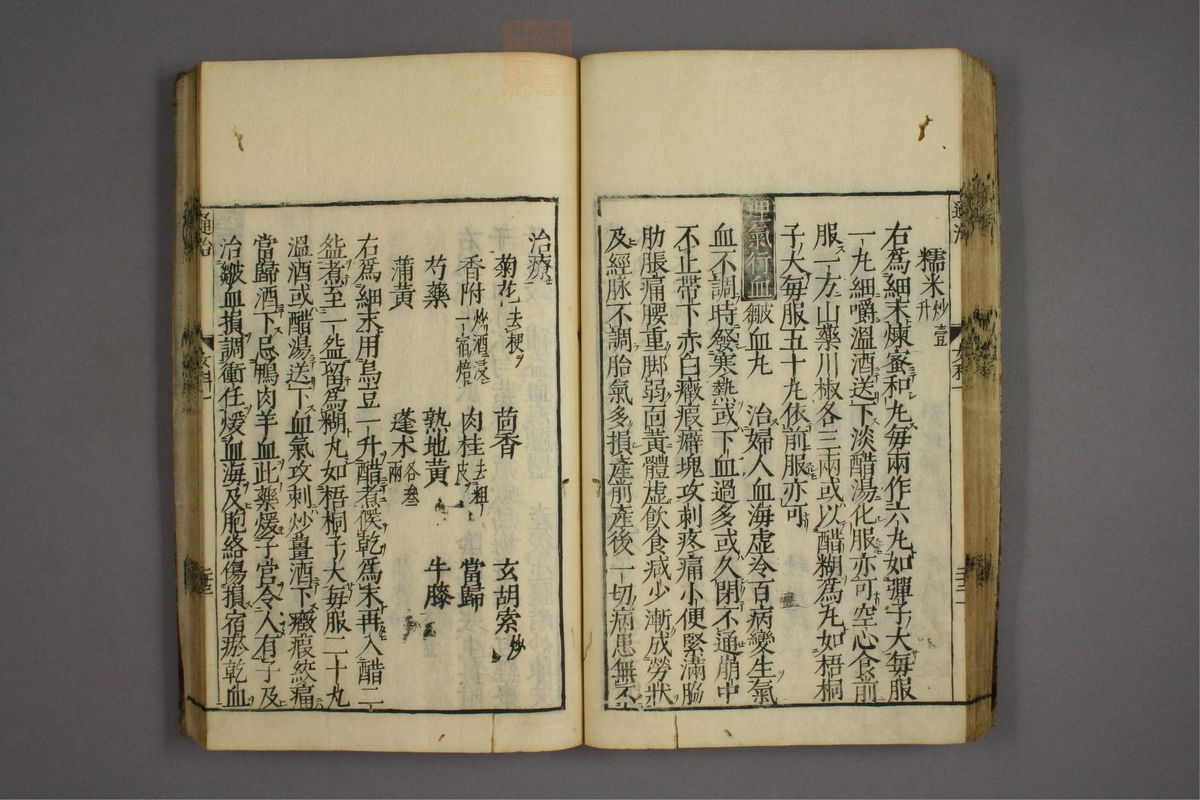 糯米炒壹升
右爲細末煉蜜和丸每兩作六丸如彈子大每服
一丸細嚼溫酒送下淡醋湯化服亦可空心食前
服一方山藥川椒各三兩或以醋糊爲丸如梧桐
子大每服五十丸依前服亦可
理氣行血 皺血丸 治婦人血海虛冷百病變生氣
血不調時發寒熱或下血過多或久閉不通崩中
不止帶下赤白癥瘕癖塊攻刺疼痛小便緊滿脇
肋脹痛腰重脚弱面黃體虛飮食減少漸成勞狀
及經脉不調胎氣多損產前產後一切病患無不
治療
菊花去梗 茴香 玄胡索炒
香附炒酒浸一宿焙 肉桂去粗皮 當歸
芍藥 熟地黃 牛膝
蒲黃 蓬术各叁兩
右爲細末用烏豆一升醋煮候乾爲末再入醋二
盌煮至一盌留爲糊丸如梧桐子大每服二十丸
溫酒或醋湯送下血氣攻刺炒薑酒下癥瘕絞痛
當歸酒下忌鴨肉羊血此藥煖子宮令人有子及
治皺血損調衝任煖血海及胞絡傷損宿瘀乾血
通治
女科一